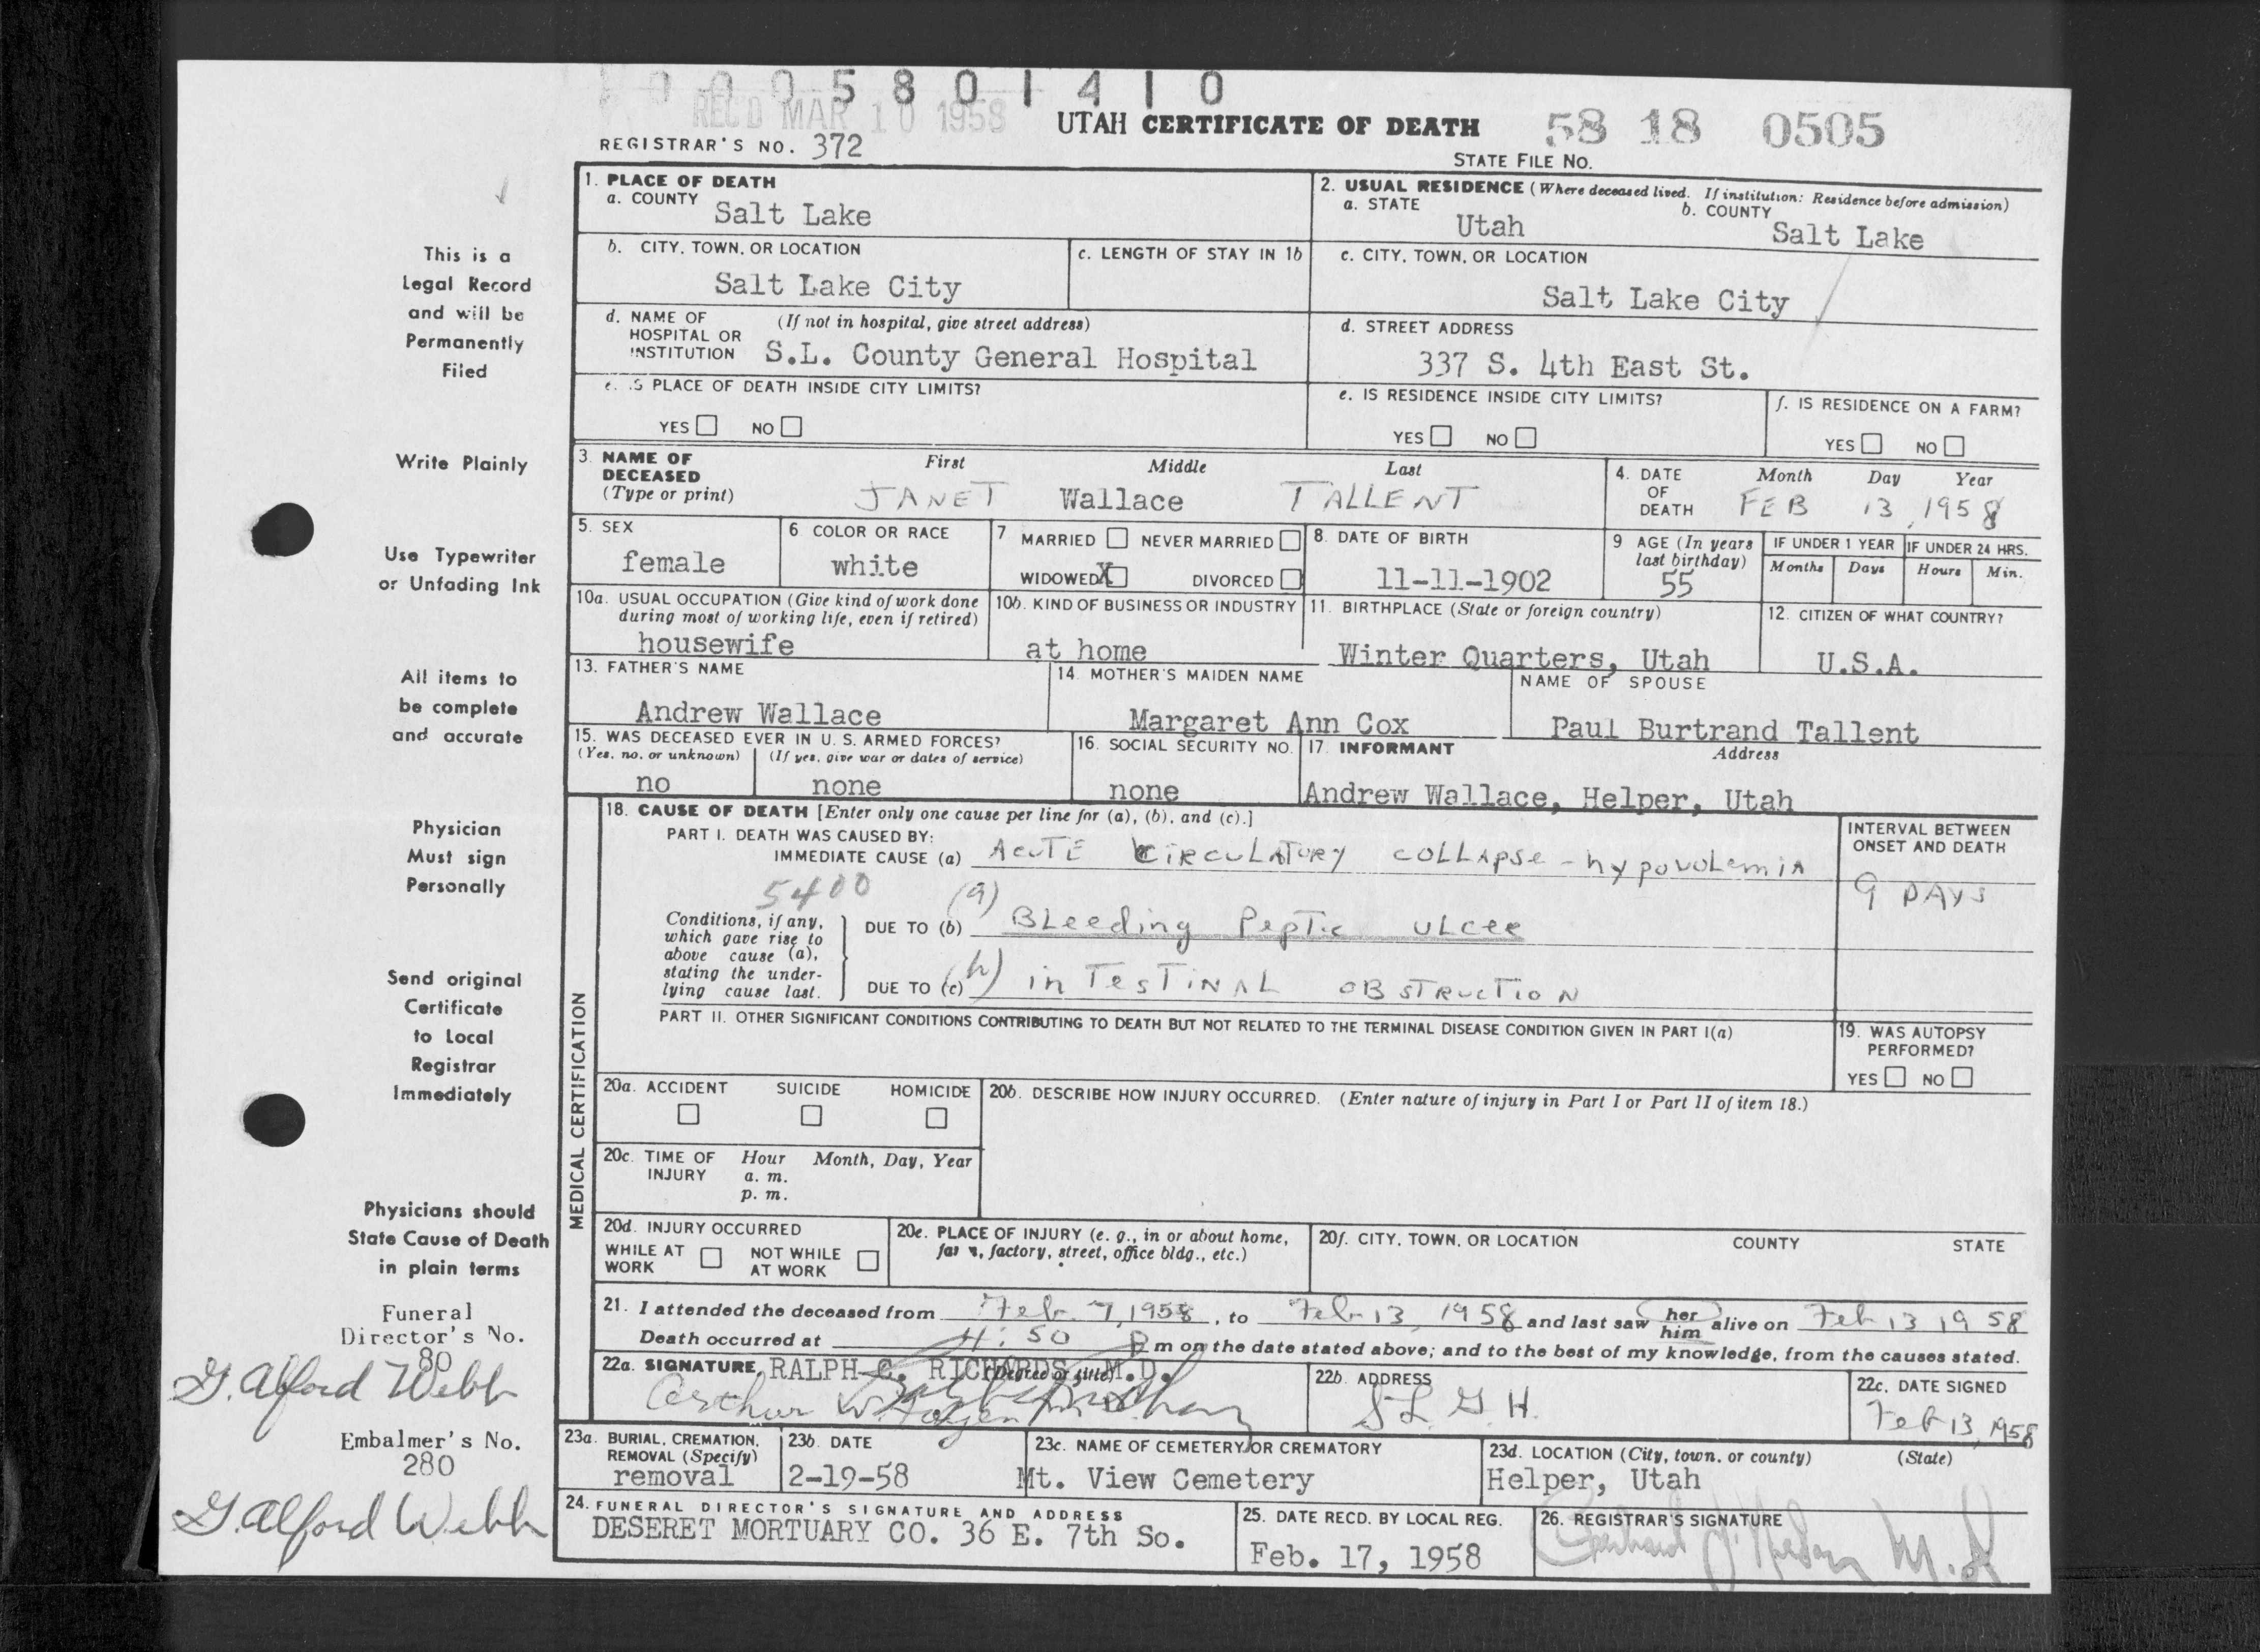 0005801410
REC'D MAR 10 1958
UTAH CERTIFICATE OF DEATH 58 18 0505
REGISTRAR'S NO. 372
STATE FILE NO.
This is a
Legal Record
and will be
Permanently
Filed
Write Plainly
Use Typewriter
or Unfading Ink
All items to
be complete
and accurate
Physician
Must sign
Personally
Send original
Certificate
to Local
Registrar
Immediately
Physicians should
State Cause of Death
in plain terms
Funeral
Director's No.
80
G. Alford Webb
Embalmer's No.
280
G. Alford Webb
1. PLACE OF DEATH
a. COUNTY Salt Lake
2. USUAL RESIDENCE (Where deceased lived. If institution: Residence before admission)
a. STATE Utah b. COUNTY Salt Lake
b. CITY, TOWN, OR LOCATION Salt Lake City
c. LENGTH OF STAY IN 1b
c. CITY, TOWN, OR LOCATION Salt Lake City
d. NAME OF HOSPITAL OR INSTITUTION (If not in hospital, give street address)
S.L. County General Hospital
d. STREET ADDRESS
337 S. 4th East St.
e. IS PLACE OF DEATH INSIDE CITY LIMITS?
YES NO
e. IS RESIDENCE INSIDE CITY LIMITS?
YES NO
f. IS RESIDENCE ON A FARM?
YES NO
3. NAME OF DECEASED (Type or print)
First Middle Last
JANET Wallace TALLENT
4. DATE OF DEATH Month Day Year
FEB 13, 1958
5. SEX
female
6 COLOR OR RACE
white
7 MARRIED NEVER MARRIED
WIDOWED X DIVORCED
8. DATE OF BIRTH
11-11-1902
9 AGE (In years last birthday)
55
IF UNDER 1 YEAR IF UNDER 24 HRS.
Months Days Hours Min.
10a. USUAL OCCUPATION (Give kind of work done during most of working life, even if retired)
housewife
10b. KIND OF BUSINESS OR INDUSTRY
at home
11. BIRTHPLACE (State or foreign country)
Winter Quarters, Utah
12. CITIZEN OF WHAT COUNTRY?
U.S.A.
13. FATHER'S NAME
Andrew Wallace
14. MOTHER'S MAIDEN NAME
Margaret Ann Cox
NAME OF SPOUSE
Paul Burtrand Tallent
15. WAS DECEASED EVER IN U. S. ARMED FORCES?
(Yes, no, or unknown) (If yes, give war or dates of service)
no none
16. SOCIAL SECURITY NO.
none
17. INFORMANT Address
Andrew Wallace, Helper, Utah
MEDICAL CERTIFICATION
18. CAUSE OF DEATH [Enter only one cause per line for (a), (b), and (c).]
PART I. DEATH WAS CAUSED BY:
IMMEDIATE CAUSE (a) ACUTE CIRCULATORY COLLAPSE - hypovolemia
INTERVAL BETWEEN ONSET AND DEATH
9 DAYS
5400
Conditions, if any, which gave rise to above cause (a), stating the underlying cause last.
DUE TO (b) (a) Bleeding Peptic ulcer
DUE TO (c) (b) inTesTiNAL OBSTRUCTION
PART II. OTHER SIGNIFICANT CONDITIONS CONTRIBUTING TO DEATH BUT NOT RELATED TO THE TERMINAL DISEASE CONDITION GIVEN IN PART I(a)
19. WAS AUTOPSY PERFORMED?
YES NO
20a. ACCIDENT SUICIDE HOMICIDE
20b. DESCRIBE HOW INJURY OCCURRED. (Enter nature of injury in Part I or Part II of item 18.)
20c. TIME OF INJURY Hour Month, Day, Year
a. m.
p. m.
20d. INJURY OCCURRED
WHILE AT WORK NOT WHILE AT WORK
20e. PLACE OF INJURY (e. g., in or about home, farm, factory, street, office bldg., etc.)
20f. CITY, TOWN, OR LOCATION COUNTY STATE
21. I attended the deceased from Feb. 7, 1958, to Feb 13, 1958 and last saw her him alive on Feb 13 1958
Death occurred at 4:50 P m on the date stated above; and to the best of my knowledge, from the causes stated.
22a. SIGNATURE (Degree or title)
RALPH C. RICHARDS M.D.
Arthur W.
22b. ADDRESS
S L G H.
22c. DATE SIGNED
Feb 13, 1958
23a. BURIAL, CREMATION, REMOVAL (Specify)
removal
23b. DATE
2-19-58
23c. NAME OF CEMETERY OR CREMATORY
Mt. View Cemetery
23d. LOCATION (City, town, or county) (State)
Helper, Utah
24. FUNERAL DIRECTOR'S SIGNATURE AND ADDRESS
DESERET MORTUARY CO. 36 E. 7th So.
25. DATE RECD. BY LOCAL REG.
Feb. 17, 1958
26. REGISTRAR'S SIGNATURE
M.D.